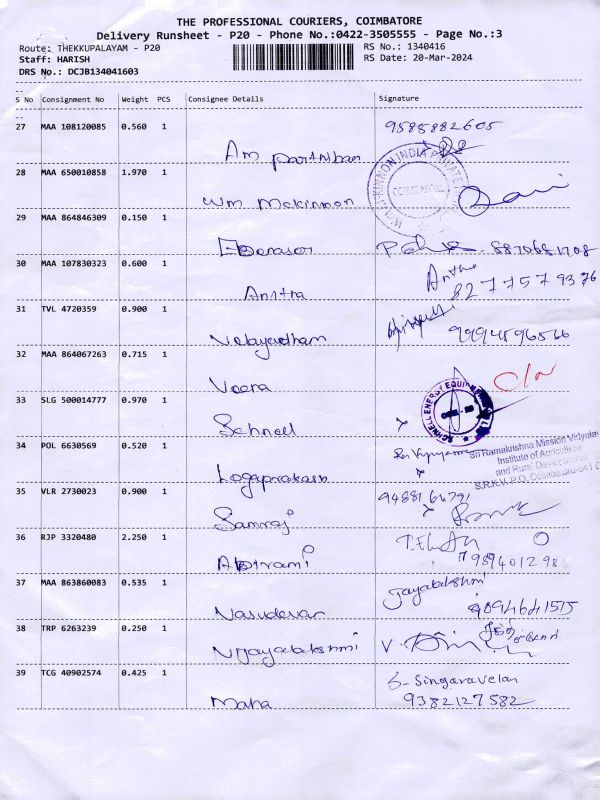 THE PROFESSIONAL COURIERS, COIMBATORE
Delivery Runsheet - P20 - Phone No.:0422-3505555 - Page No.:3
Route: THEKKUPALAYAM - P20
RS No.: 1340416
Staff: HARISH
RS Date: 20-Mar-2024
DRS No.: DCJB134041603
S No Consignment No Weight PCS Consignee Details Signature
27 MAA 108120085 0.560 1
9585882605
Am parthiban
28 MAA 650010858 1.970 1
Wm Mckinnon
29 MAA 864846309 0.150 1
8870681708
30 MAA 107830323 0.600 1
Anitha
Anitra
8277579376
31 TVL 4720359 0.900 1
Velayutham
9994896566
32 MAA 864067263 0.715 1
Veera
33 SLG 500014777 0.970 1
SCHNELL ENERGY EQUIPMENTS
Schnell
34 POL 6630569 0.520 1
Sri Ramakrishna Mission Vidyalaya
Institute of Agriculture
and Rural Development
S.R.K.V. P.O. Coimbatore-641 0
Logaprakash
35 VLR 2730023 0.900 1
Samraj
36 RJP 3320480 2.250 1
Abirami
7989401298
37 MAA 863860083 0.535 1
Jayalakshmi
Vasudevan
8094641515
38 TRP 6263239 0.250 1
Vijayalakshmi
39 TCG 40902574 0.425 1
S- Singaravelan
Maha
9382127582